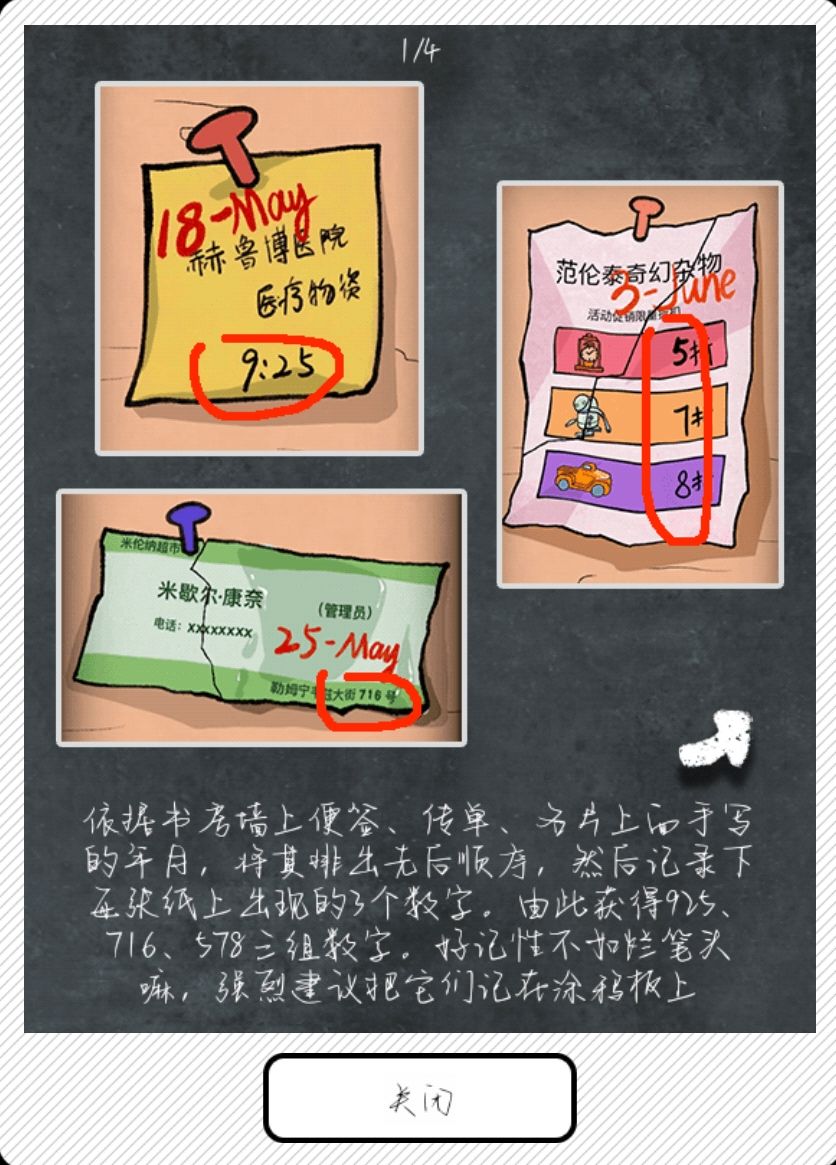 1/4
18-May
赫鲁博医院
医疗物资
9:25
范伦泰奇幻杂物
3-June
活动促销限量
5折
7折
8折
米伦纳超市
米歇尔·康奈
(管理员)
电话:XXXXXXXX
25-May
勒姆宁 大街716号
依据书房墙上便签、传单、名片上面手写
的年月,将其排出先后顺序,然后记录下
每张纸上出现的3个数字。由此获得925、
716、578三组数字。好记性不如烂笔头
嘛,强烈建议把它们记在涂鸦板上
关闭